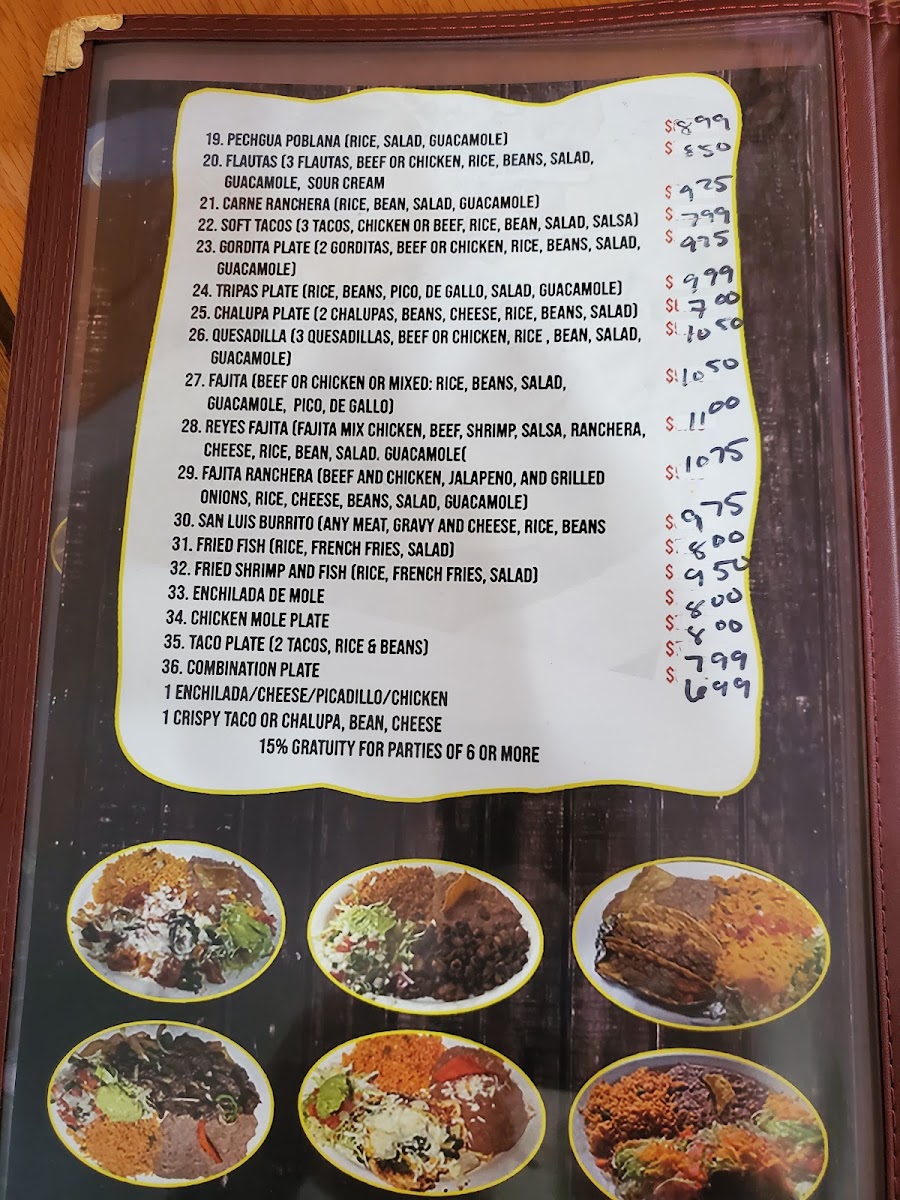 19. PECHGUA POBLANA (RICE, SALAD, GUACAMOLE) $899
20. FLAUTAS (3 FLAUTAS, BEEF OR CHICKEN, RICE, BEANS, SALAD, $850
GUACAMOLE, SOUR CREAM
21. CARNE RANCHERA (RICE, BEAN, SALAD, GUACAMOLE) $925
22. SOFT TACOS (3 TACOS, CHICKEN OR BEEF, RICE, BEAN, SALAD, SALSA) $799
23. GORDITA PLATE (2 GORDITAS, BEEF OR CHICKEN, RICE, BEANS, SALAD, $925
GUACAMOLE)
24. TRIPAS PLATE (RICE, BEANS, PICO, DE GALLO, SALAD, GUACAMOLE) $999
25. CHALUPA PLATE (2 CHALUPAS, BEANS, CHEESE, RICE, BEANS, SALAD) $700
26. QUESADILLA (3 QUESADILLAS, BEEF OR CHICKEN, RICE , BEAN, SALAD, $1050
GUACAMOLE)
27. FAJITA (BEEF OR CHICKEN OR MIXED: RICE, BEANS, SALAD, $1050
GUACAMOLE, PICO, DE GALLO)
28. REYES FAJITA (FAJITA MIX CHICKEN, BEEF, SHRIMP, SALSA, RANCHERA, $1100
CHEESE, RICE, BEAN, SALAD. GUACAMOLE(
29. FAJITA RANCHERA (BEEF AND CHICKEN, JALAPENO, AND GRILLED $1075
ONIONS, RICE, CHEESE, BEANS, SALAD, GUACAMOLE)
30. SAN LUIS BURRITO (ANY MEAT, GRAVY AND CHEESE, RICE, BEANS $975
31. FRIED FISH (RICE, FRENCH FRIES, SALAD) $800
32. FRIED SHRIMP AND FISH (RICE, FRENCH FRIES, SALAD) $950
33. ENCHILADA DE MOLE $800
34. CHICKEN MOLE PLATE $800
35. TACO PLATE (2 TACOS, RICE & BEANS) $799
36. COMBINATION PLATE $699
1 ENCHILADA/CHEESE/PICADILLO/CHICKEN
1 CRISPY TACO OR CHALUPA, BEAN, CHEESE
15% GRATUITY FOR PARTIES OF 6 OR MORE